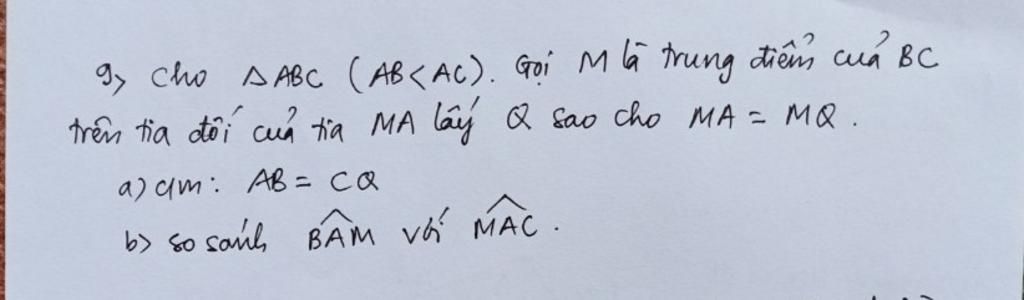 9> Cho △ABC (AB<AC). Gọi M là trung điểm của BC
trên tia đối của tia MA lấy Q sao cho MA = MQ.
a) c/m: AB = CQ
b> so sánh \widehat{BAM} với \widehat{MAC}.